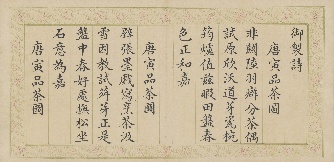 御製詩
唐寅品茶圖
非關陸羽癖分茶偶
試原欣沃道芽瓷椀
筠爐值茲暇田盤春
色正和嘉
唐寅品茶圖
難張墨戲寫烹茶汲
雪因教試荈芽正是
盤中春好處與松坐
石意為嘉
唐寅品茶圖